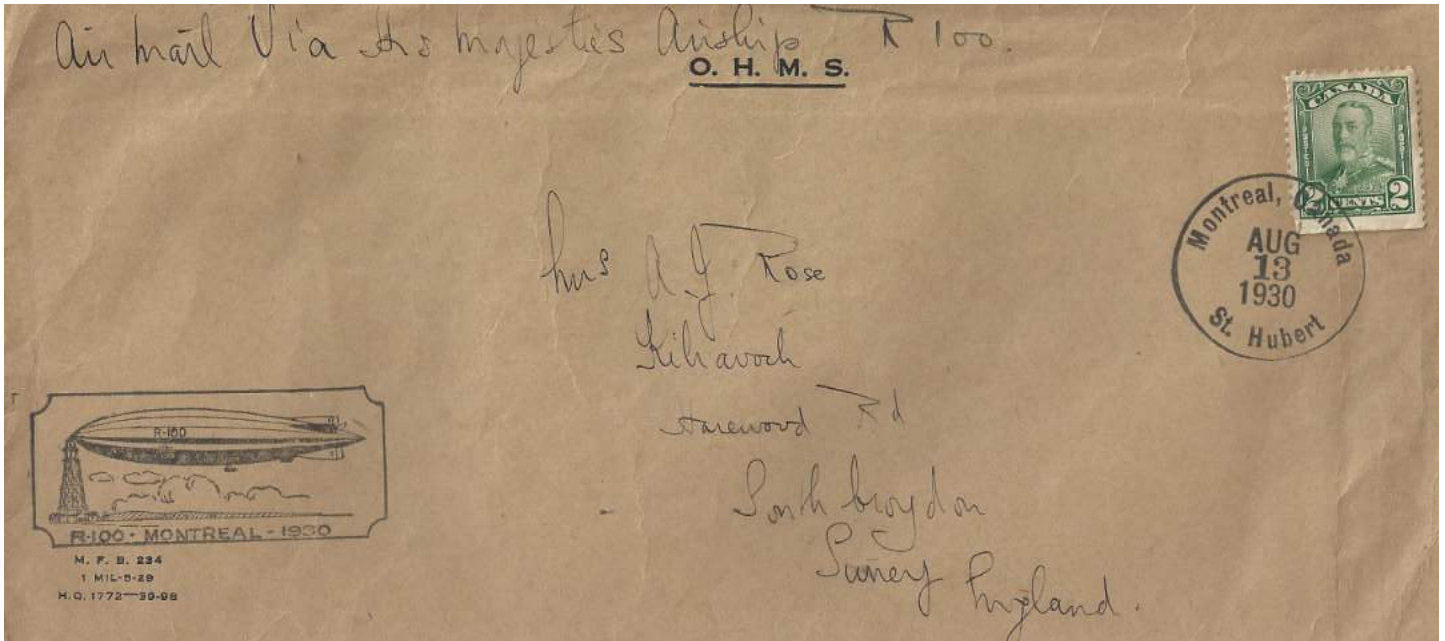 Air mail Via His Majesties Airship R 100.
O. H. M. S.
CANADA
POSTES POST
2 CENTS 2
Montreal, Canada
AUG
13
1930
St. Hubert
Mrs A. J. Rose
Kilravoch
Harewood Rd
South Croydon
Surrey England.
R-100
R-100 - MONTREAL - 1930
M. F. B. 234
1 MIL-5-29
H.Q. 1772—39-98